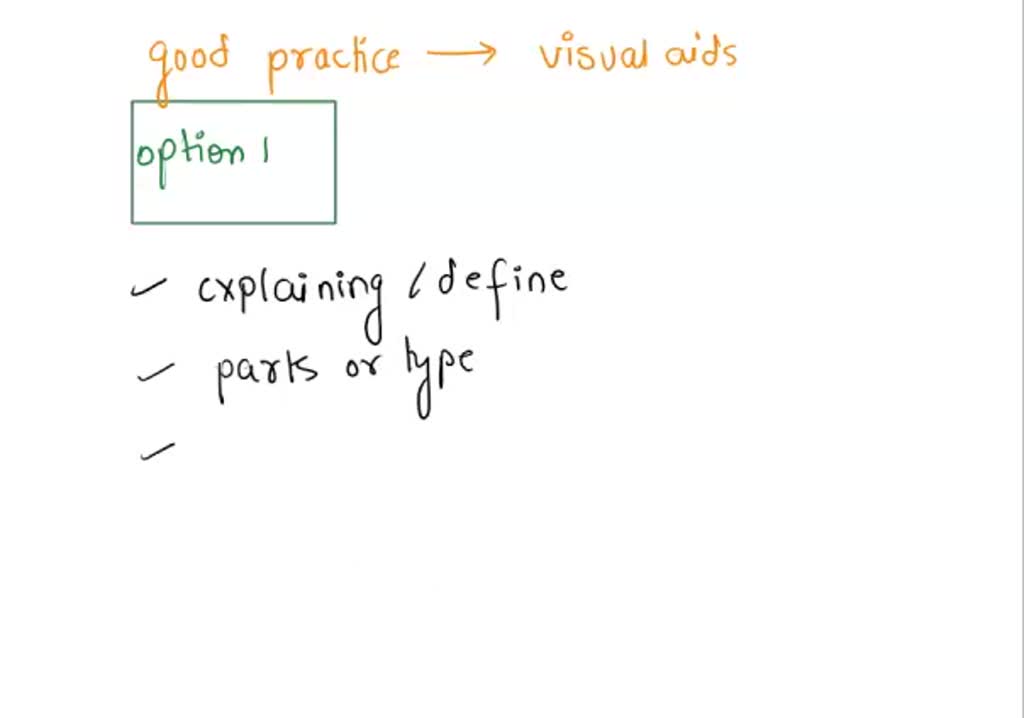 good practice → visual aids
option 1
explaining / define
parts or type